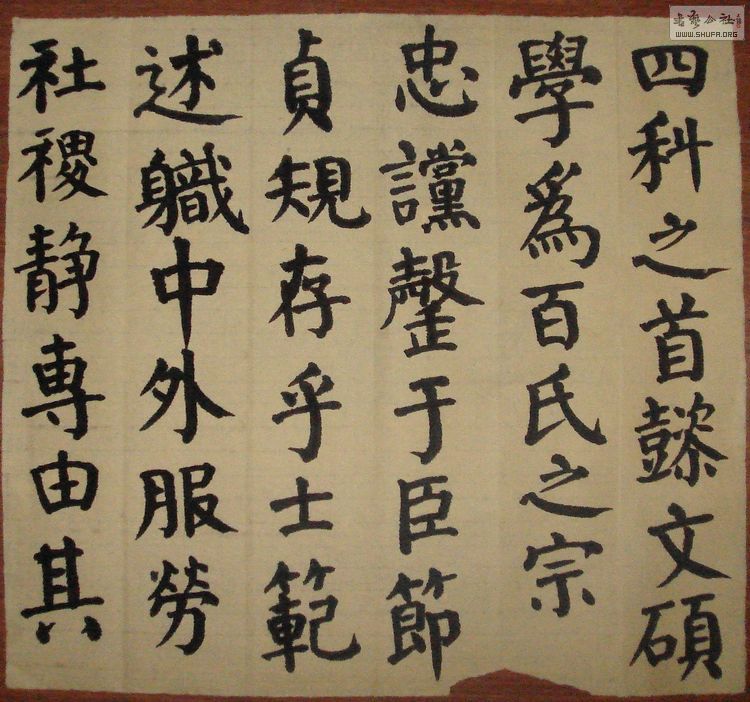 四科之首懿文碩
學爲百氏之宗
忠讜罄于臣節
貞規存乎士範
述軄中外服勞
社稷静專由其
书艺公社
WWW.SHUFA.ORG